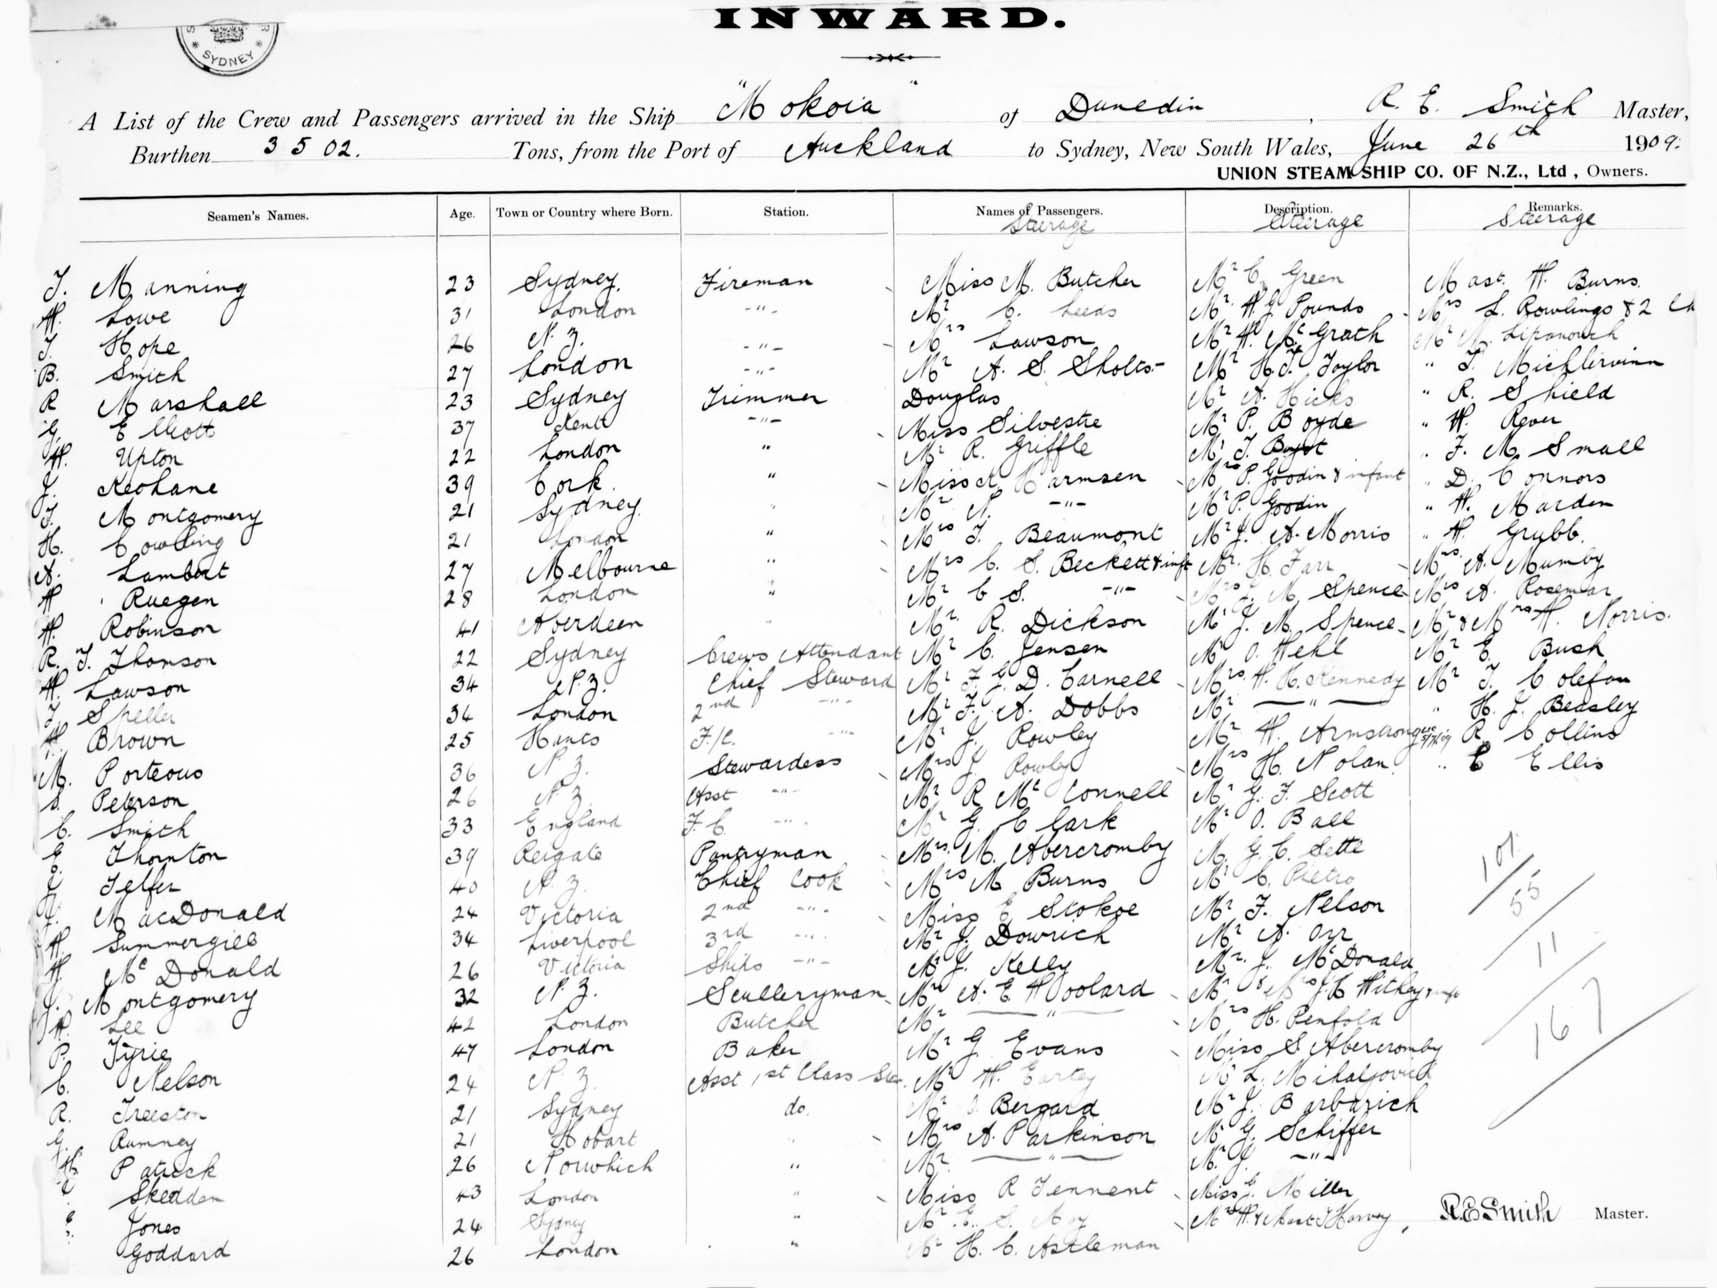 SYDNEY
INWARD.
A List of the Crew and Passengers arrived in the Ship "Mokoia" of Dunedin, R. E. Smith Master,
Burthen 3502. Tons, from the Port of Auckland to Sydney, New South Wales, June 26th 1909.
UNION STEAM SHIP CO. OF N.Z., Ltd, Owners.
Seamen's Names. Age. Town or Country where Born. Station. Names of Passengers. Description. Remarks.
Steerage Steerage Steerage
T. Manning 23 Sydney. Fireman Miss M. Butcher Mr C. Green Mast. H. Burns.
H. Lowe 31 London -"- Mr C. Leeds Mr H. J. Pounds Mrs L. Rowlings & 2 Ch
T. Hope 26 N.Z. -"- Mrs Lawson Mr H. McGrath Mr M. Lipanovich
B. Smith 27 London -"- Mr A. S. Sholto- Mr H. T. Taylor " T.
R Marshall 23 Sydney Trimmer Douglas Mr A. Hicks " R. Shield
G. Elliott 37 Kent -"- Miss Silvestre Mr P. Boyde " H. Rever
H. Upton 22 London " Mr R. Griffle Mr T. " F. M. Small
J. Keohane 39 Cork. " Miss A. Harmsen Mrs P. Goodin & infant " D. Connors
T. Montgomery 21 Sydney. " Mr N. -"- Mr P. Goodin " H. Marden
H. Cowling 21 London " Mrs T. Beaumont Mr J. A. Morris " H. Grubb.
A. Lambert 27 Melbourne " Mrs C. S. Beckett & inft Mr H. Farr Mrs A. Mumby
H Ruegen 28 London " Mr C S. -"- Mrs J. M. Spence Mrs A. Rosemar
H. Robinson 41 Aberdeen Mr R. Dickson Mr J. M. Spence Mr & Mrs H. Norris.
R. T. Thomson 22 Sydney Crews Attendant Mr C. Jensen Mr O. Wehl Mr E. Bush
H. Lawson 34 N.Z. Chief Steward Mr F. G. D. Carnell Mrs H. H. Kennedy Mr T. Colefan
T. Speller 34 London 2nd -"- Mr F. A. Dobbs Mr -"- " H. J. Beasley
H. Brown 25 Hants F/C. -"- Mr J. Rowley Mr H. Armstrong R. Collins
M. Porteous 36 N.Z. Stewardess Mrs J. Rowley Mrs H. Nolan. " C Ellis
S. Peterson 26 N.Z. Asst -"- Mr R McConnell Mr G. F. Scott
C. Smith 33 England F.C. -"- Mr G. Clark Mr O. Ball
E. Thornton 39 Reigate Pantryman Mrs. M. Abercromby M. G. C. Sette
J. Telfer 40 N.Z. Chief Cook Mrs M Burns Mr C. Pietro
J. MacDonald 24 Victoria 2nd -"- Miss E Stokoe Mr F. Nelson
H. Summergill 34 Liverpool 3rd -"- Mr J. Dowrich Mr A. Orr
H. McDonald 26 Victoria Ships -"- Mr J. Kelly Mr. J. McDonald
J. Montgomery 32 N.Z. Sculleryman Mrs A. E Woolard Mr & Mrs J. C Withey & inft
H. Lee 42 London Butcher Mr -"- Mrs H. Penfold
P. Tyrie 47 London Baker Mr G. Evans Miss S Abercromby
C. Nelson 24 N.Z. Asst 1st Class Stew. Mr H. Eartey Mr L. Mihaljovich
R. Treeston 21 Sydney do. Mr Bergard Mr J. Barbarich
G. Rumney 21 Hobart " Mrs A. Parkinson Mr G. Schiffer
H. Patrick 26 Norwhich " Mr. -"- Mr J. -"-
Skedden 43 London " Miss R Tennent Miss E. Miller
Jones 24 Sydney " Mr E. S. May Mrs H. & Mast J Harvey
Goddard 26 London " Mr H. C. Astleman
101
55
11
167
R.E Smith Master.